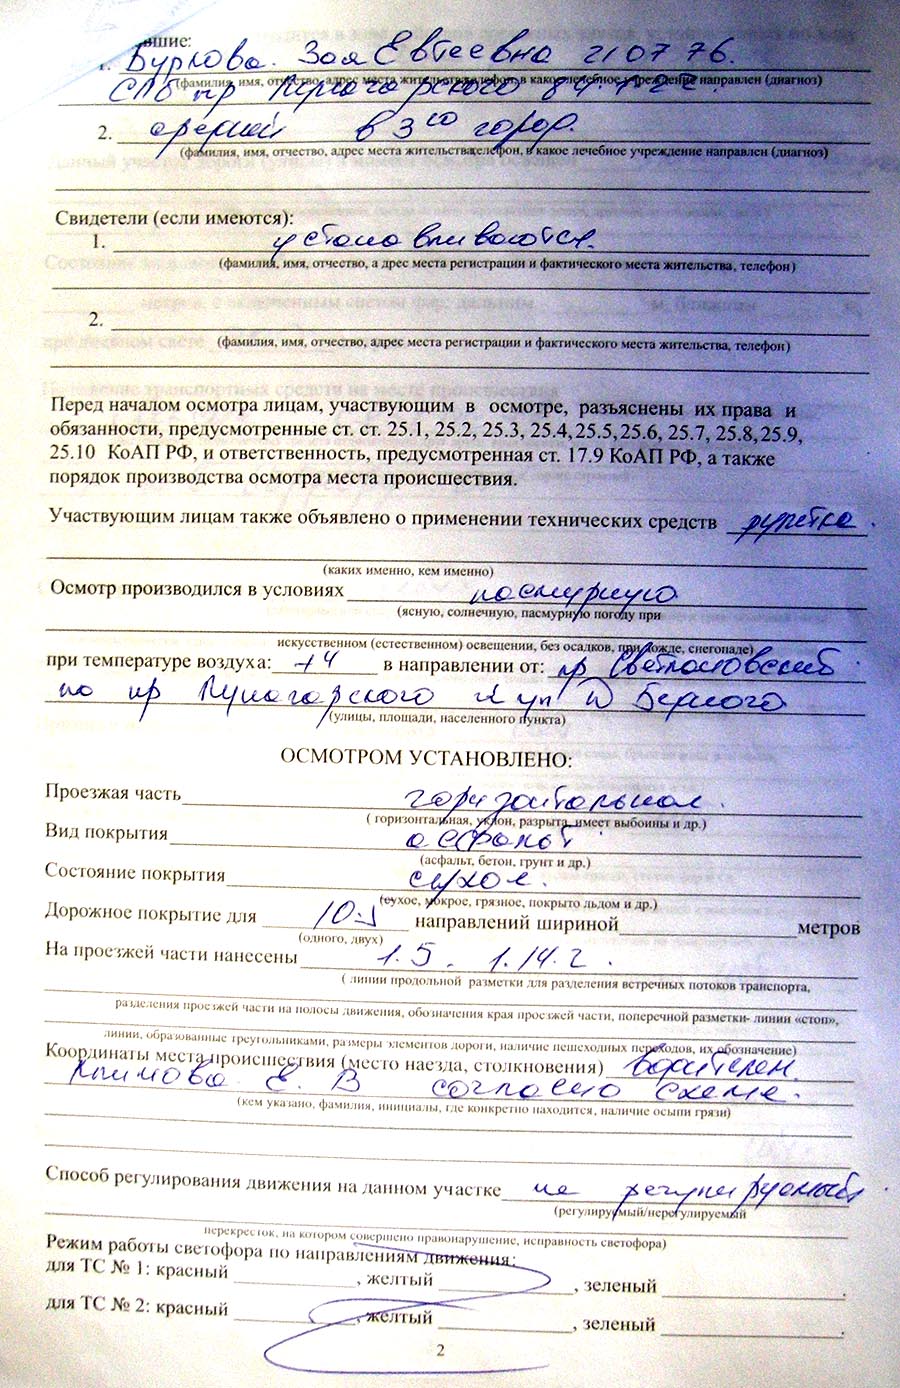 вшие:
1. Буркова. Зоя Евтеевна 21 07 76.
(фамилия, имя, отчество, адрес места жительства, телефон, в какое лечебное учреждение направлен (диагноз)
СПб пр Луначарского
2. в 3 ю город.
(фамилия, имя, отчество, адрес места жительства, телефон, в какое лечебное учреждение направлен (диагноз)
Свидетели (если имеются):
1. устанавливаются.
(фамилия, имя, отчество, а дрес места регистрации и фактического места жительства, телефон)
2.
(фамилия, имя, отчество, адрес места регистрации и фактического места жительства, телефон)
Перед началом осмотра лицам, участвующим в осмотре, разъяснены их права и
обязанности, предусмотренные ст. ст. 25.1, 25.2, 25.3, 25.4, 25.5, 25.6, 25.7, 25.8, 25.9,
25.10 КоАП РФ, и ответственность, предусмотренная ст. 17.9 КоАП РФ, а также
порядок производства осмотра места происшествия.
Участвующим лицам также объявлено о применении технических средств рулетка.
(каких именно, кем именно)
Осмотр производился в условиях пасмурную
(ясную, солнечную, пасмурную погоду при
искусственном (естественном) освещении, без осадков, при дожде, снегопаде)
при температуре воздуха: +4 в направлении от: пр Светлановский
по пр Луначарского к ул Д Бедного
(улицы, площади, населенного пункта)
ОСМОТРОМ УСТАНОВЛЕНО:
Проезжая часть горизонтальная.
( горизонтальная, уклон, разрыта, имеет выбоины и др.)
Вид покрытия асфальт
(асфальт, бетон, грунт и др.)
Состояние покрытия сухое.
(сухое, мокрое, грязное, покрыто льдом и др.)
Дорожное покрытие для направлений шириной метров
(одного, двух)
На проезжей части нанесены 1.5. 1.14.2.
( линии продольной разметки для разделения встречных потоков транспорта,
разделения проезжей части на полосы движения, обозначения края проезжей части, поперечной разметки- линии «стоп»,
линии, образованные треугольниками, размеры элементов дороги, наличие пешеходных переходов, их обозначение)
Координаты места происшествия (место наезда, столкновения) водителем.
Климова Е. В согласно схеме.
(кем указано, фамилия, инициалы, где конкретно находится, наличие осыпи грязи)
Способ регулирования движения на данном участке не регулируемый
(регулируемый/нерегулируемый
перекресток, на котором совершено правонарушение, исправность светофора)
Режим работы светофора по направлениям движения:
для ТС № 1: красный , желтый , зеленый .
для ТС № 2: красный , желтый , зеленый .
2